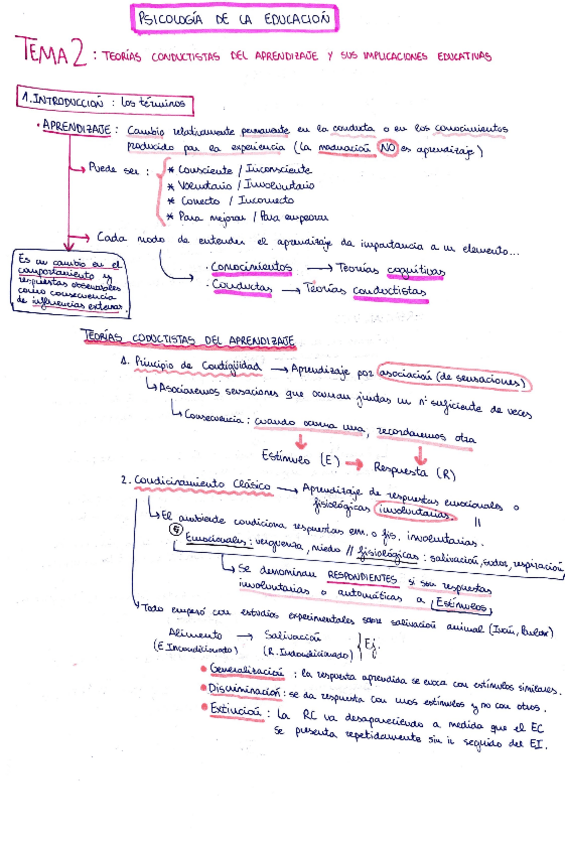 PSICOLOGÍA DE LA EDUCACIÓN
TEMA 2: TEORÍAS CONDUCTISTAS DEL APRENDIZAJE Y SUS IMPLICACIONES EDUCATIVAS
1. INTRODUCCIÓN: Los términos
• APRENDIZAJE: Cambio relativamente permanente en la conducta o en los conocimientos
producido por la experiencia (La maduración NO es aprendizaje)
Puede ser:
* Consciente / Inconsciente
* Voluntario / Involuntario
* Correcto / Incorrecto
* Para mejorar / Para empeorar
Cada modo de entender el aprendizaje da importancia a un elemento...
Es un cambio en el
comportamiento y
respuestas observables
como consecuencia
de influencias externas.
· Conocimientos → Teorías cognitivas
· Conductas → Teorías conductistas
TEORÍAS CODUCTISTAS DEL APRENDIZAJE
1. Principio de Contigüidad → Aprendizaje por asociación (de sensaciones)
Asociaremos sensaciones que ocurran juntas un nº suficiente de veces
Consecuencia: cuando ocurra una, recordaremos otra
Estímulo (E) → Respuesta (R)
2. Condicinamiento Clásico → Aprendizaje de respuestas emocionales o
fisiológicas involuntarias. "
El ambiente condiciona respuestas em. o fis. involuntarias.
Emocionales: vergüenza, miedo // fisiológicas: salivación, sudor, respiración
Se denominan RESPONDIENTES si son respuestas
involuntarias o automáticas a Estímulos
Todo empezó con estudios experimentales sobre salivación animal (Iván, Pavlov)
Alimento → Salivación
(E. Incondicionado) (R. Incondicionado) } Ej.
• Generalización: la respuesta aprendida se evoca con estímulos similares.
• Discriminación: se da respuesta con unos estímulos y no con otros.
• Extinción: La RC va desapareciendo a medida que el EC
se presenta repetidamente sin ir seguido del EI.